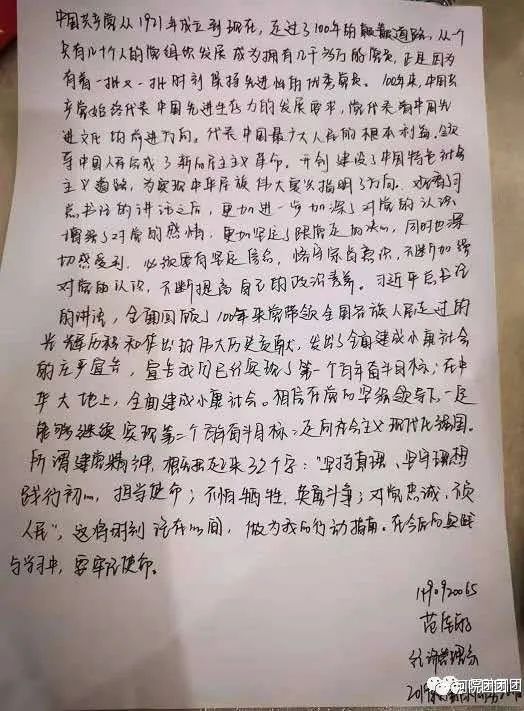 中国共产党从1921年成立到现在，走过了100年的艰难道路，从一个
只有几十个人的党组织发展成为拥有几千万的党员，正是因为
有着一批又一批时刻保持先进性的优秀党员。100年来，中国共
产党始终代表中国先进生产力的发展要求，党代表着中国先
进文化的前进方向。代表中国最广大人民的根本利益。领
导中国人民完成了新民主主义革命。开创建设了中国特色社会
主义道路，为实现中华民族伟大复兴指明了方向。观看习
总书记的讲话之后，更加进一步加深了对党的认识，
增强了对党的感情，更加坚定了跟党走的决心，同时也深
切感受到，必须要有坚定信念，不断加强
对党的认识，不断提高自己的政治素养。习近平总书记
的讲话，全面回顾了100年来党带领全国各族人民走过的
光辉历程和作出的伟大历史贡献，发出了全面建成小康社会
的庄严宣告，宣告我们已经实现了第一个百年奋斗目标：在中
华大地上，全面建成小康社会。相信在党的坚强领导下一定
能够继续实现第二个百年奋斗目标：走向社会主义现代化强国。
所谓建党精神，概括出来32个字："坚持真理、坚守理想
践行初心，担当使命；不怕牺牲，英勇斗争；对党忠诚，不负
人民"，这将时刻记在心间，做为我的行动指南。在今后的实践
与学习中，要牢记使命。
149092065
范
2019
河院团团团